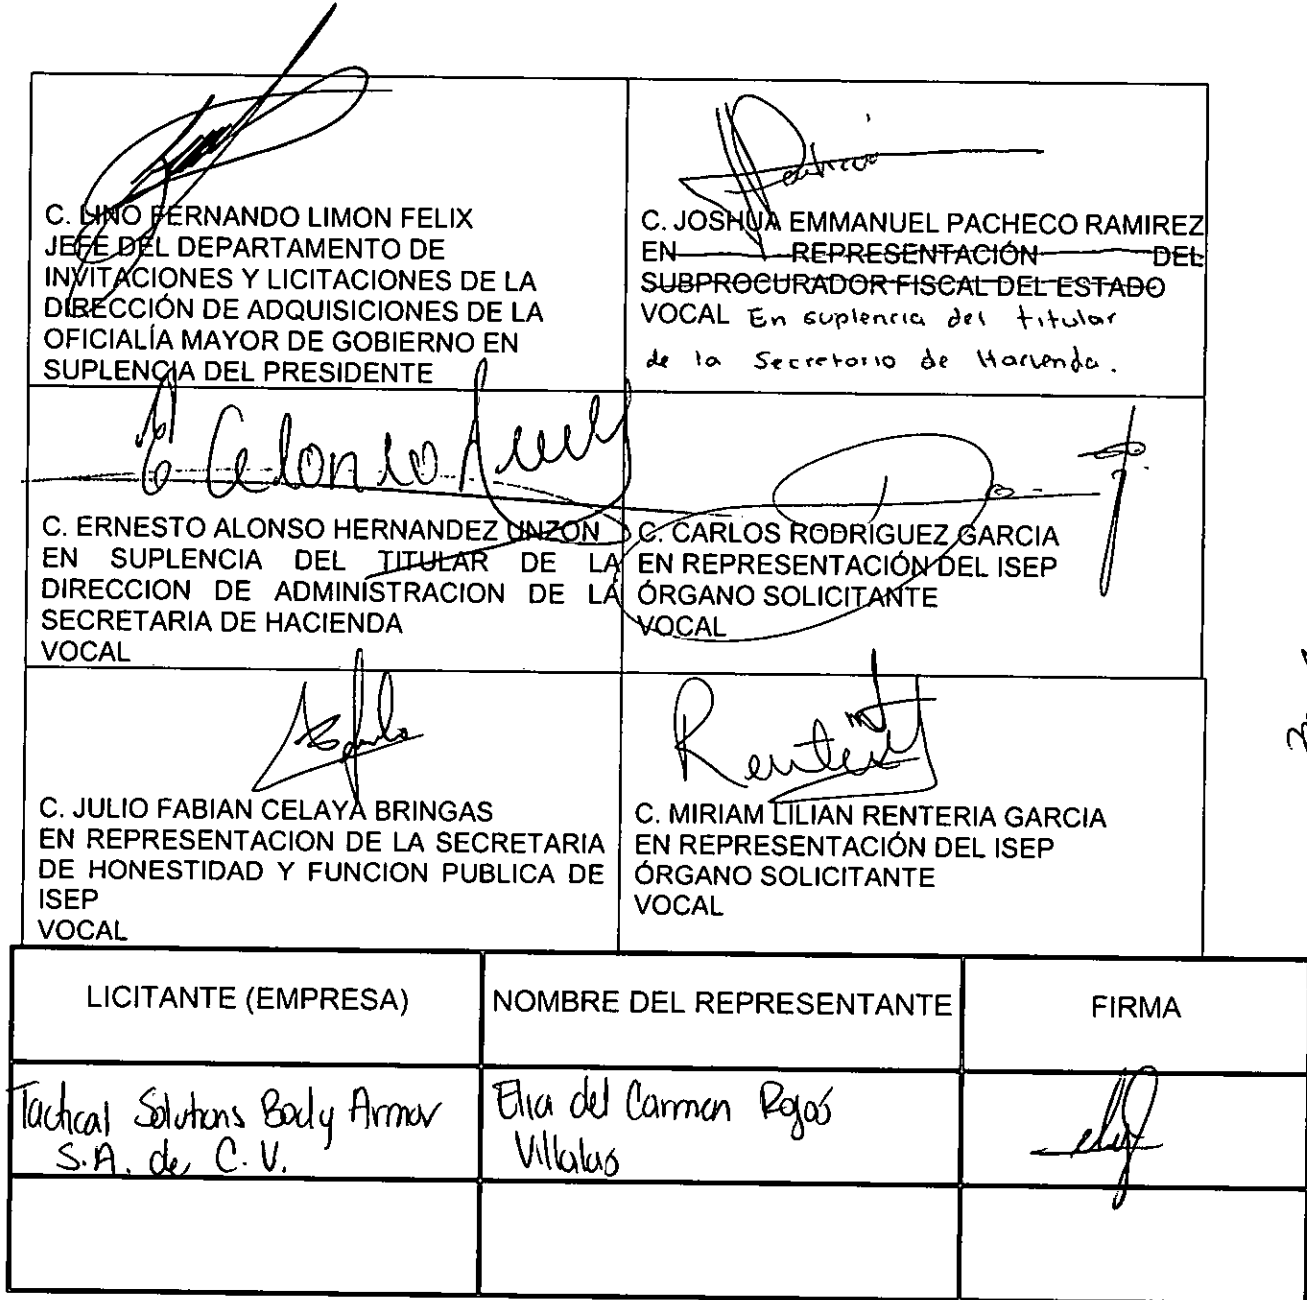 C. LINO FERNANDO LIMON FELIX
JEFE DEL DEPARTAMENTO DE
INVITACIONES Y LICITACIONES DE LA
DIRECCIÓN DE ADQUISICIONES DE LA
OFICIALÍA MAYOR DE GOBIERNO EN
SUPLENCIA DEL PRESIDENTE
C. JOSHUA EMMANUEL PACHECO RAMIREZ
EN REPRESENTACIÓN DEL
SUBPROCURADOR FISCAL DEL ESTADO
VOCAL En suplencia del titular
de la Secretario de Hacienda.
C. ERNESTO ALONSO HERNANDEZ UNZON
EN SUPLENCIA DEL TITULAR DE LA
DIRECCION DE ADMINISTRACION DE LA
SECRETARIA DE HACIENDA
VOCAL
C. CARLOS RODRÍGUEZ GARCIA
EN REPRESENTACIÓN DEL ISEP
ÓRGANO SOLICITANTE
VOCAL
C. JULIO FABIAN CELAYA BRINGAS
EN REPRESENTACION DE LA SECRETARIA
DE HONESTIDAD Y FUNCION PUBLICA DE
ISEP
VOCAL
C. MIRIAM LILIAN RENTERIA GARCIA
EN REPRESENTACIÓN DEL ISEP
ÓRGANO SOLICITANTE
VOCAL
LICITANTE (EMPRESA) NOMBRE DEL REPRESENTANTE FIRMA
Tactical Solutions Body Armor
S.A. de C.V.
Elia del Carmen Rojas
Villalas